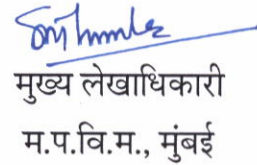 मुख्य लेखाधिकारी
म.प.वि.म., मुंबई